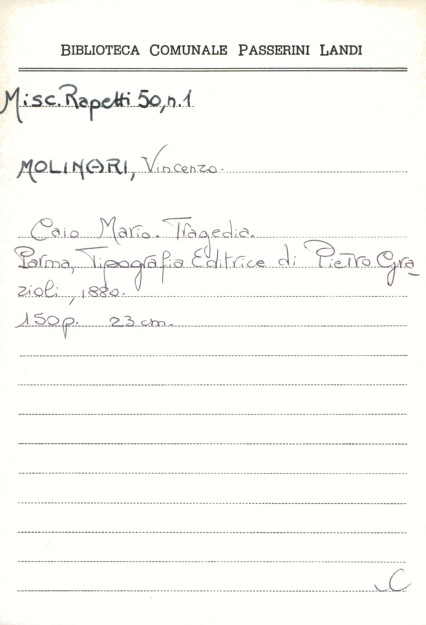 BIBLIOTECA COMUNALE PASSERINI LANDI
Misc. Rapetti 50, n. 1
MOLINARI, Vincenzo.
Caio Mario. Tragedia.
Parma, Tipografia Editrice di Pietro Gra-
zioli, 1880.
150 p. 23 cm.
C